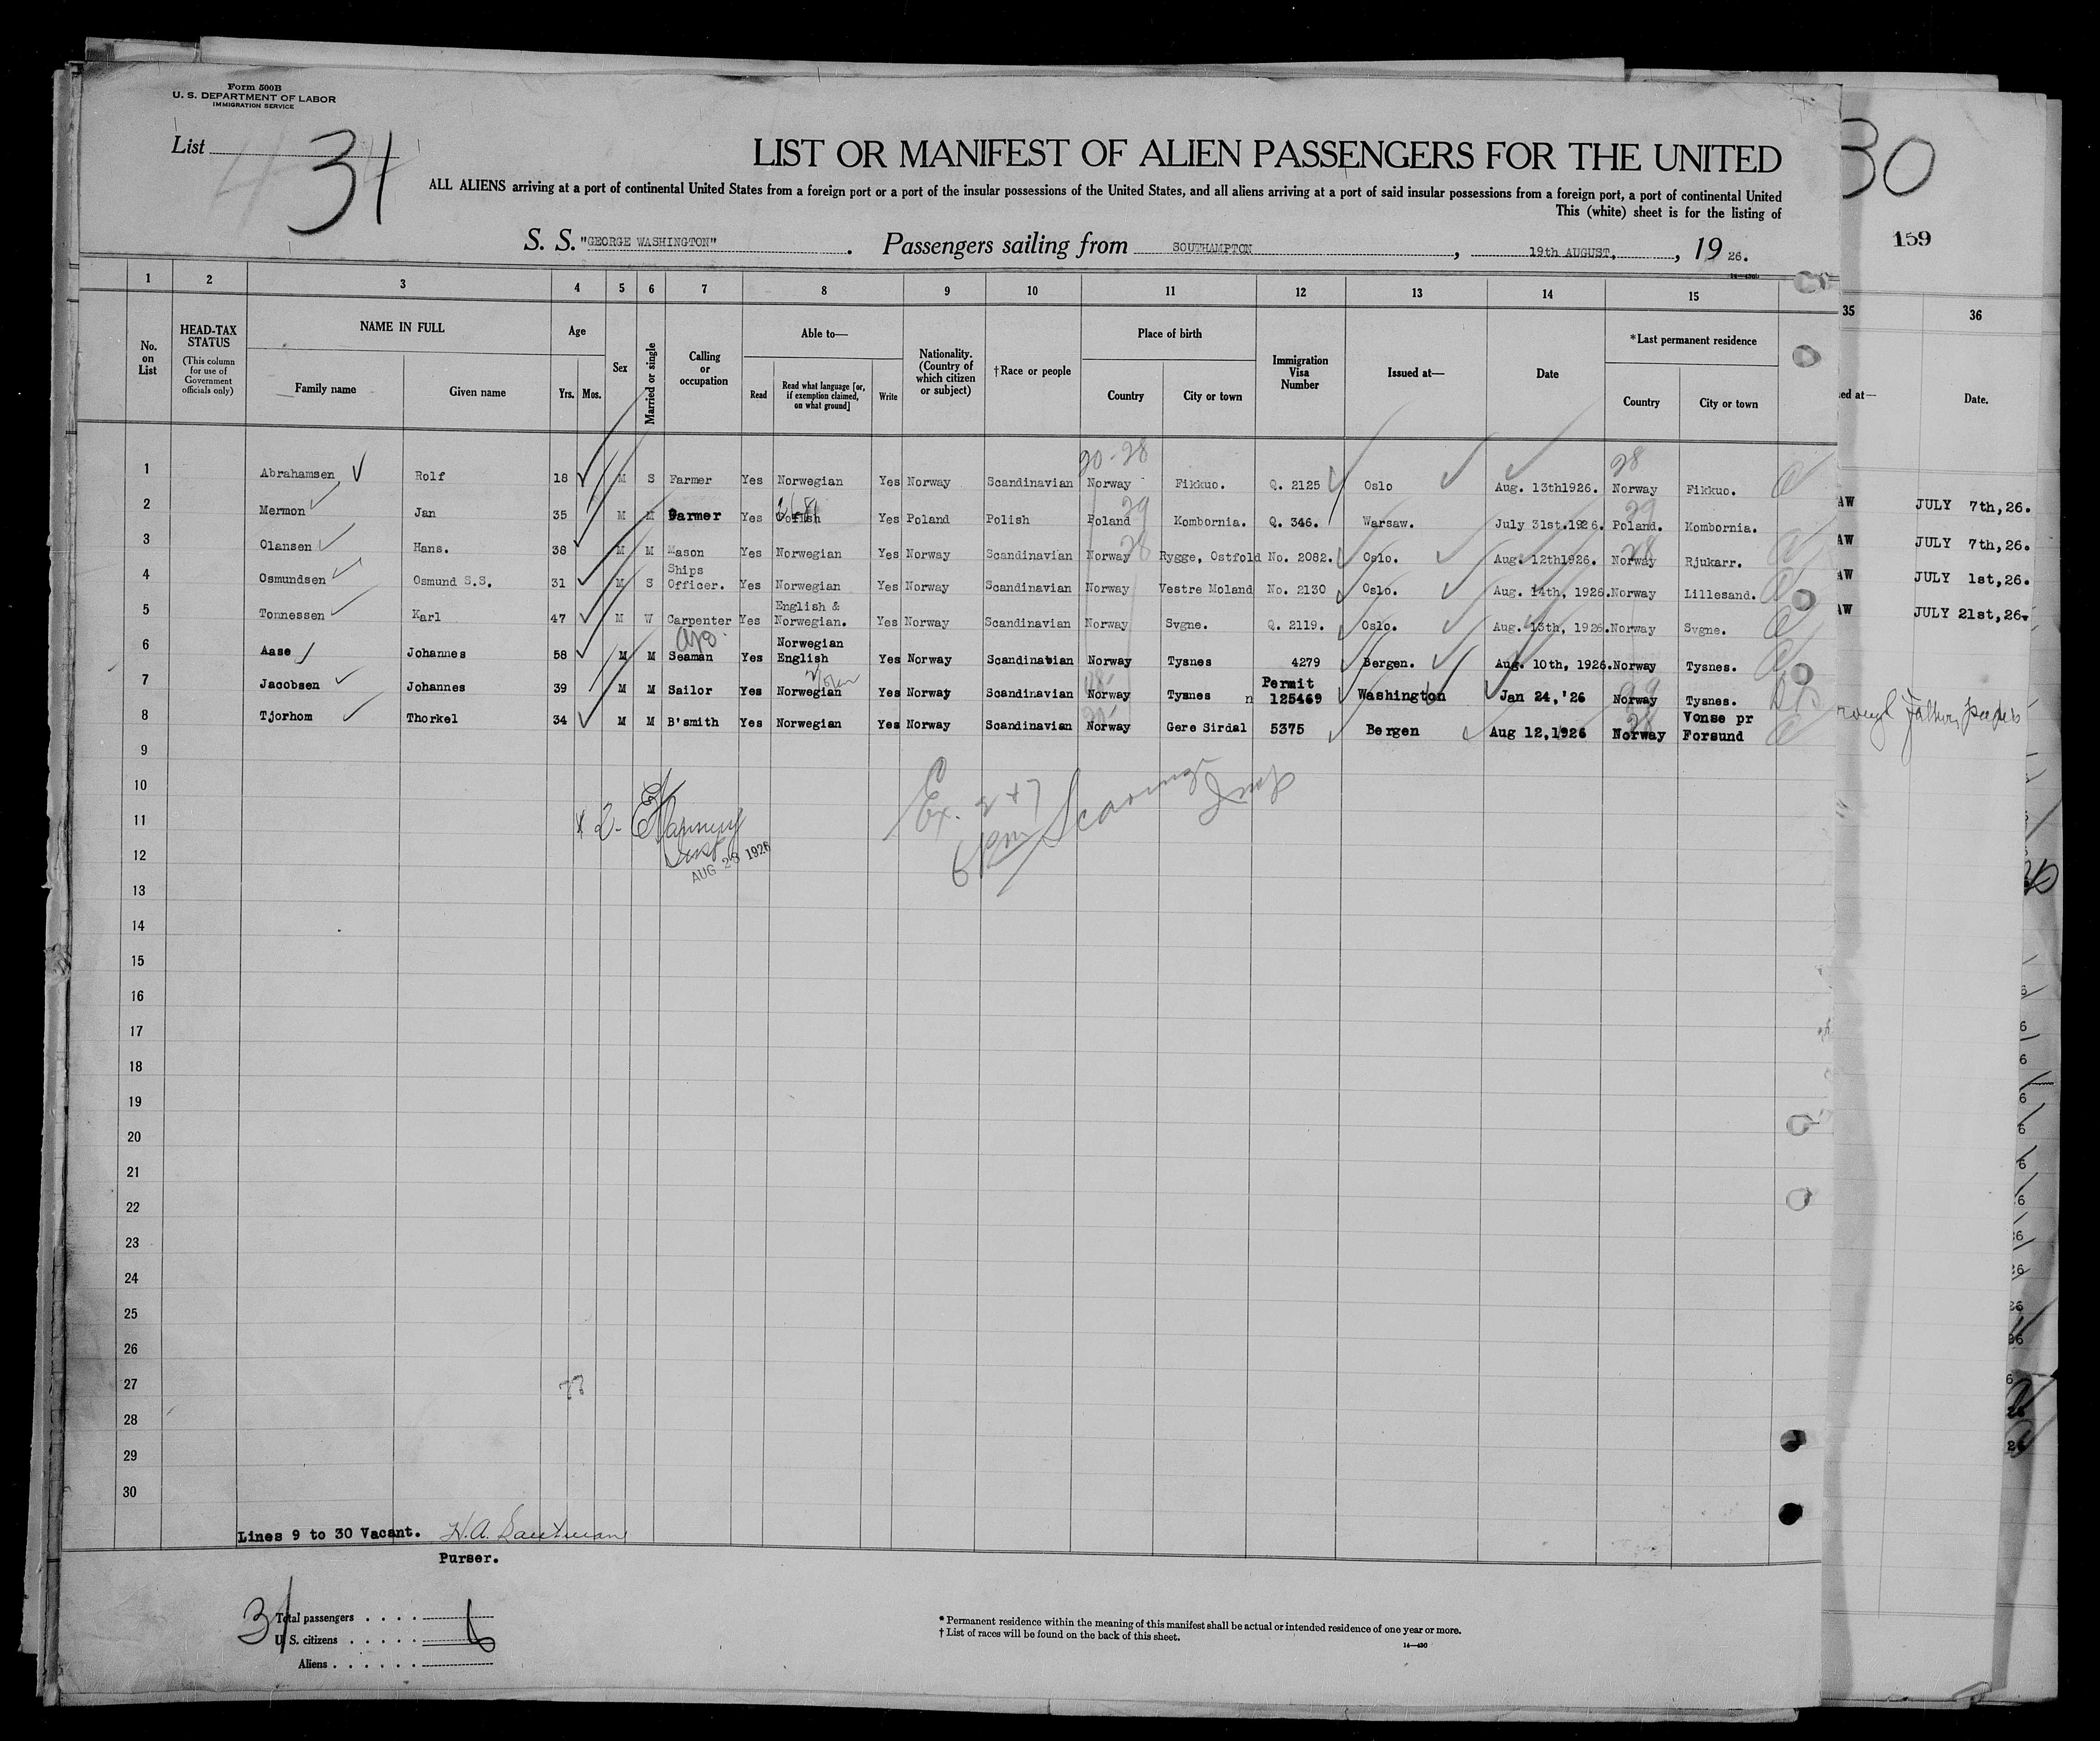 Form 500B
U. S. DEPARTMENT OF LABOR
IMMIGRATION SERVICE
List 31
LIST OR MANIFEST OF ALIEN PASSENGERS FOR THE UNITED
ALL ALIENS arriving at a port of continental United States from a foreign port or a port of the insular possessions of the United States, and all aliens arriving at a port of said insular possessions from a foreign port, a port of continental United
This (white) sheet is for the listing of
S. S. "GEORGE WASHINGTON". Passengers sailing from SOUTHAMPTON, 19th AUGUST., 1926.
14—430b
1 2 3 4 5 6 7 8 9 10 11 12 13 14 15
No. on List
HEAD-TAX STATUS
(This column for use of Government officials only)
NAME IN FULL
Family name Given name
Age
Yrs. Mos.
Sex
Married or single
Calling or occupation
Able to—
Read Read what language [or, if exemption claimed, on what ground] Write
Nationality. (Country of which citizen or subject)
†Race or people
Place of birth
Country City or town
Immigration Visa Number
Issued at—
Date
*Last permanent residence
Country City or town
20-28 28
1 Abrahamsen Rolf 18 M S Farmer Yes Norwegian Yes Norway Scandinavian Norway Fikkuo. Q. 2125 Oslo Aug. 13th1926. Norway Fikkuo.
29 29
2 Mermon Jan 35 M M Farmer Yes Polish Yes Poland Polish Poland Kombornia. Q. 346. Warsaw. July 31st.1926. Poland. Kombornia.
28 28
3 Olansen Hans. 38 M M Mason Yes Norwegian Yes Norway Scandinavian Norway Rygge, Ostfold No. 2082. Oslo. Aug. 12th1926. Norway Rjukarr.
4 Osmundsen Osmund S.S. 31 M S Ships Officer. Yes Norwegian Yes Norway Scandinavian Norway Vestre Moland No. 2130 Oslo. Aug. 14th, 1926. Norway Lillesand.
5 Tonnessen Karl 47 M W Carpenter Yes English & Norwegian. Yes Norway Scandinavian Norway Svgne. Q. 2119. Oslo. Aug. 13th, 1926. Norway Svgne.
6 Aase Johannes 58 M M Seaman Yes Norwegian English Yes Norway Scandinavian Norway Tysnes 4279 Bergen. Aug. 10th, 1926. Norway Tysnes.
7 Jacobsen Johannes 39 M M Sailor Yes Norwegian Yes Norway Scandinavian Norway Tysnes n Permit 125469 Washington Jan 24,'26 Norway Tysnes.
8 Tjorhom Thorkel 34 M M B'smith Yes Norwegian Yes Norway Scandinavian Norway Gere Sirdal 5375 Bergen Aug 12,1926 28 Norway Vonse pr Forsund
9
10
11
12
AUG 28 1926
Ex. 2+7
13
14
15
16
17
18
19
20
21
22
23
24
25
26
27
28
29
30
Lines 9 to 30 Vacant.
Purser.
31
Total passengers
U. S. citizens
Aliens
* Permanent residence within the meaning of this manifest shall be actual or intended residence of one year or more.
† List of races will be found on the back of this sheet.
14—430
30
159
35 36
ed at— Date.
AW JULY 7th,26.
AW JULY 7th,26.
AW JULY 1st,26.
AW JULY 21st,26.